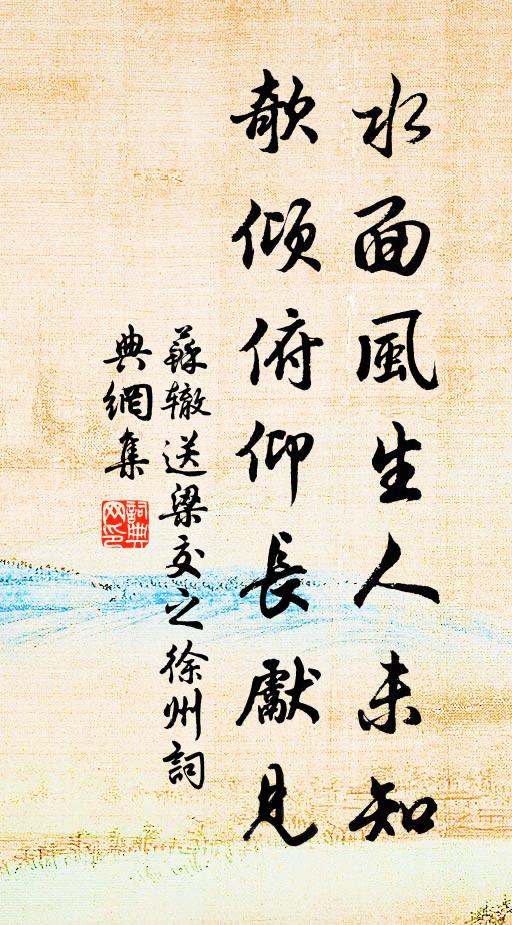 水面風生人未知
欹傾俯仰長獻見
蘇轍送梁交之徐州詞
典網集
詞典
网印